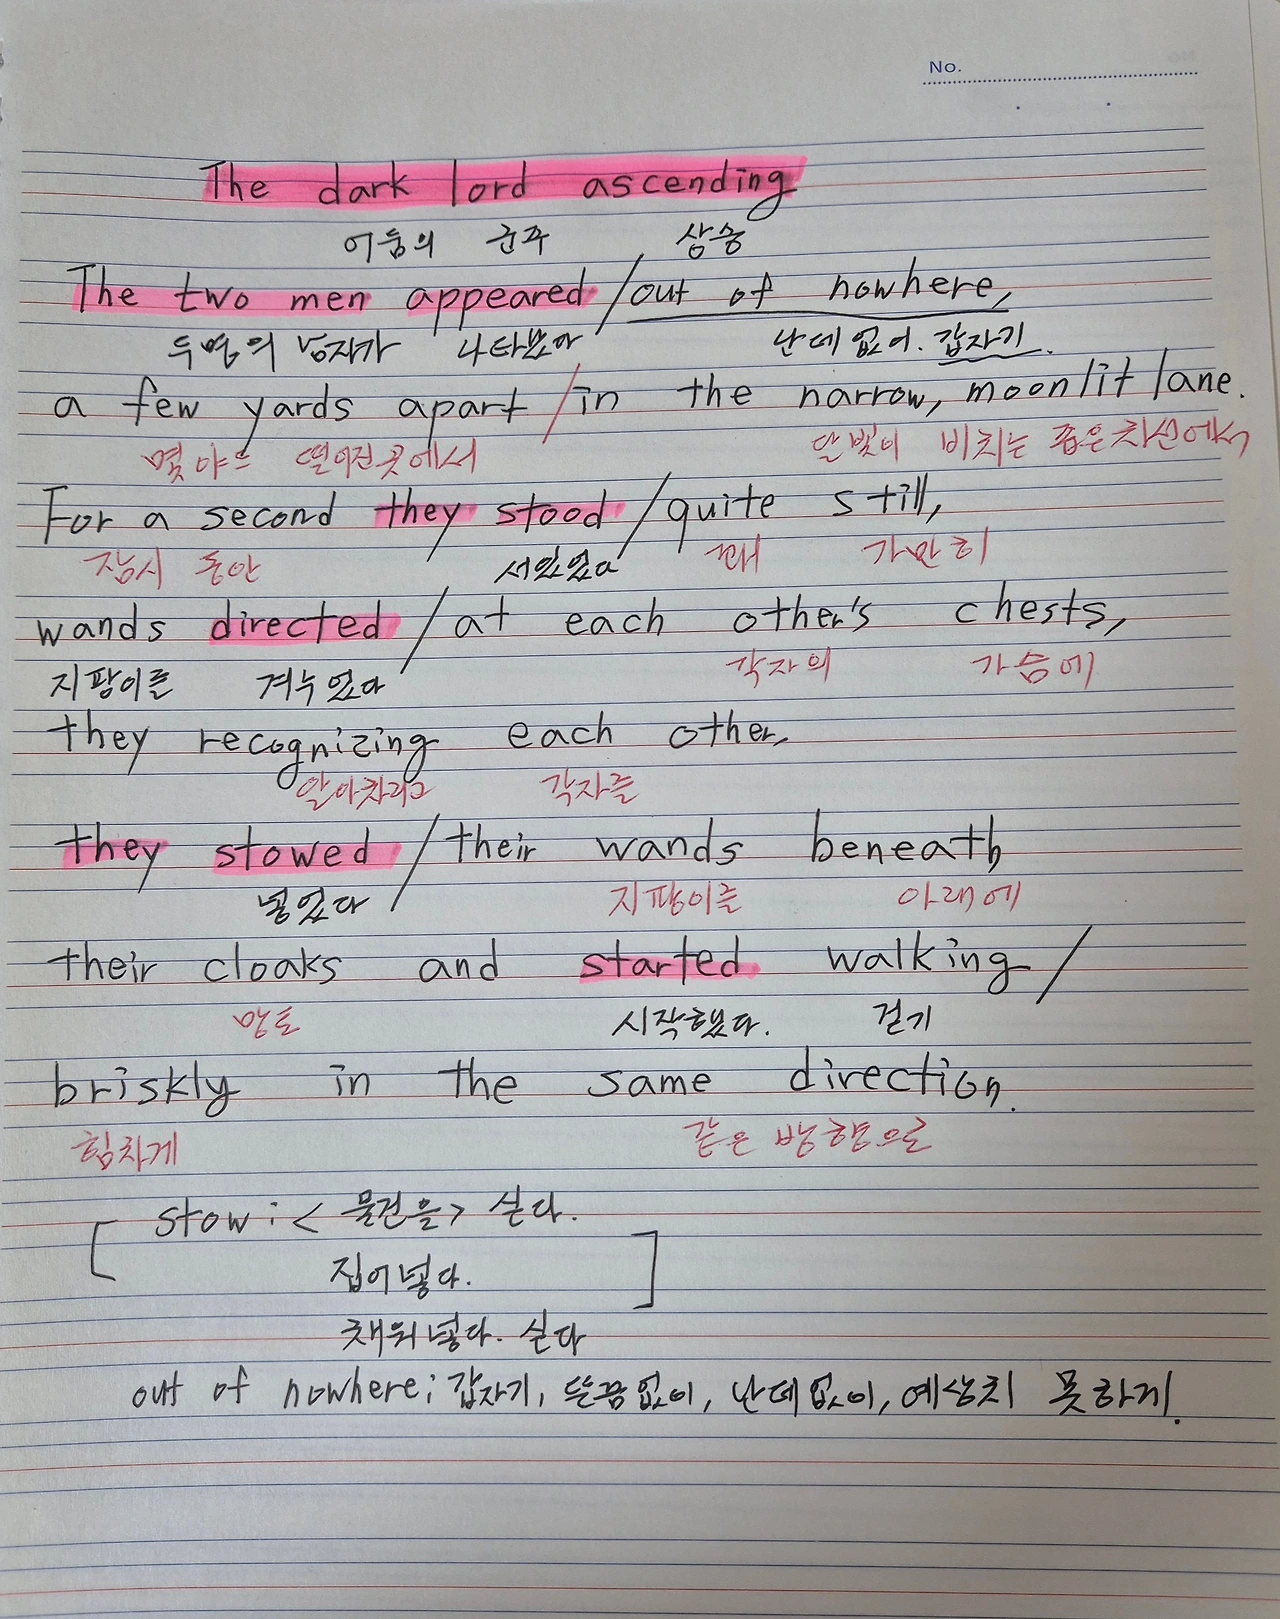 No.
The dark lord ascending
어둠의 군주 상승
The two men appeared / out of nowhere,
두명의 남자가 나타났다 난데없어. 갑자기.
a few yards apart / in the narrow, moonlit lane.
몇 야드 떨어진곳에서 달빛이 비치는 좁은차선에서
For a second they stood / quite still,
잠시 동안 서있었다 꽤 가만히
wands directed / at each other's chests,
지팡이를 겨누었다 각자의 가슴에
they recognizing each other,
알아차리고 각자를
they stowed / their wands beneath
넣었다 지팡이를 아래에
their cloaks and started walking /
망토 시작했다. 걷기
briskly in the same direction.
힘차게 같은 방향으로
[ stow : < 물건을> 싣다.
집어넣다. ]
채워넣다. 싣다
out of nowhere; 갑자기, 뜬끔없이, 난데없이, 예상치 못하게.